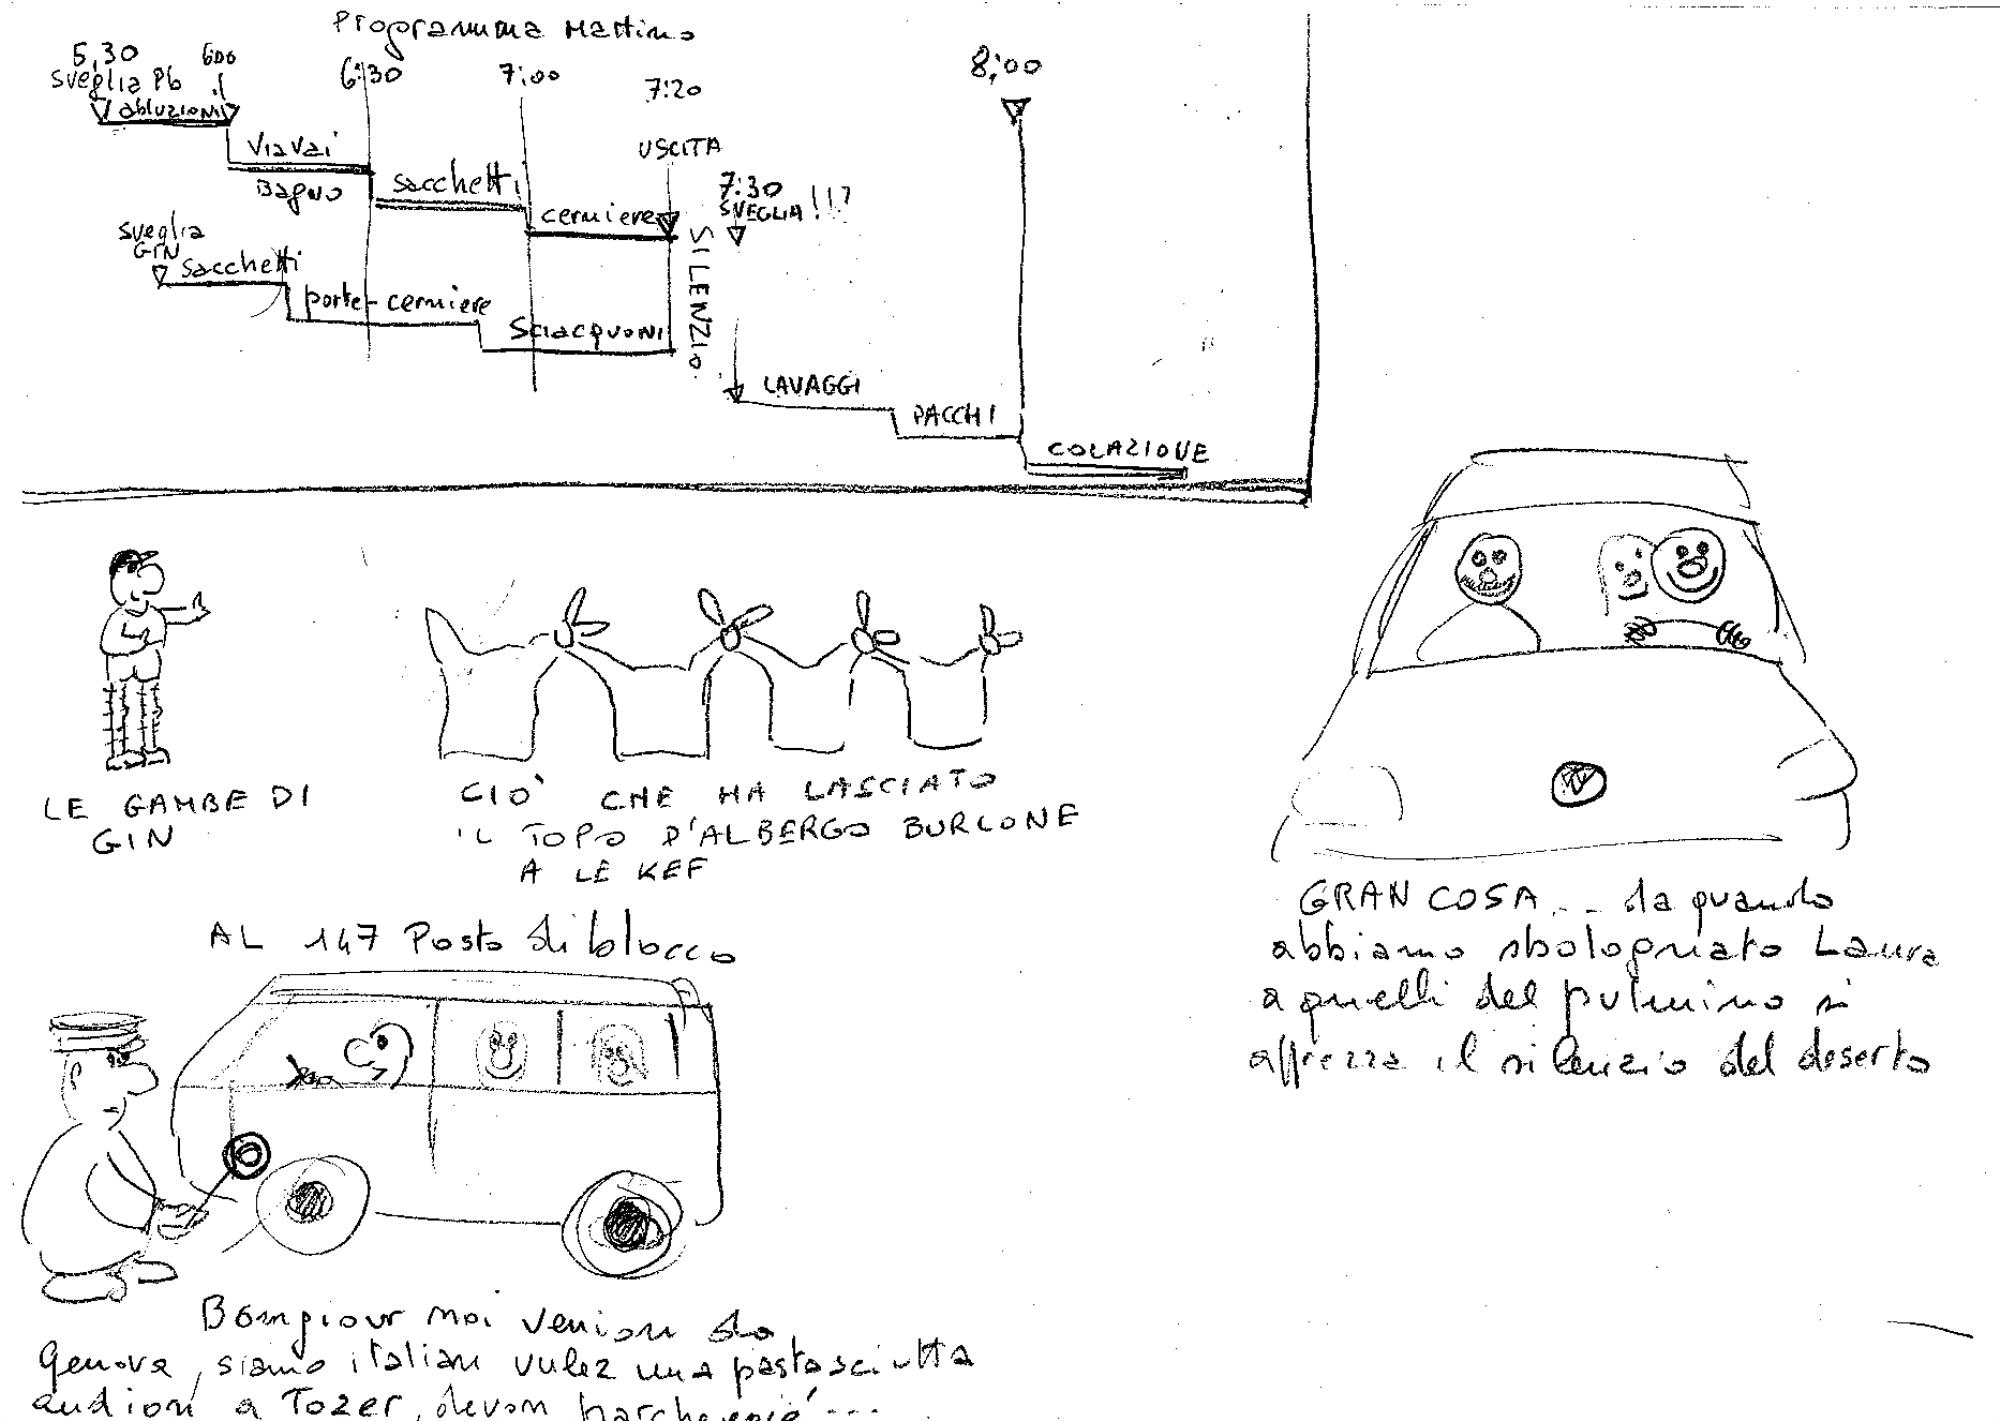 Programma Mattino
5,30
600
6:30
7:00
7:20
8:00
sveglia Pb
abluzioni
viavai
Bagno
sacchetti
cerniere
USCITA
7:30
SVEGLIA !!?
SILENZIO
sveglia
GIN
sacchetti
porte-cerniere
Sciacquoni
LAVAGGI
PACCHI
COLAZIONE
LE GAMBE DI
GIN
CIO' CHE HA LASCIATO
IL TOPO D'ALBERGO BURLONE
A LE KEF
GRAN COSA... da quando
abbiamo sbolognato Laura
a quelli del pulmino si
apprezza il silenzio del deserto
AL 147 Posto di blocco
Bongiour noi venion da
Genova, siamo italian vulez una pastasciutta
andion a Tozer, devon